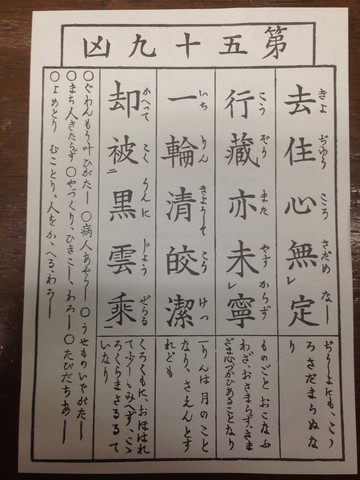 第五十九凶
去住心無定
きよ ぢゆう こころ さだめ なし
ぢうしよにも、こゝ
ろさだまらぬな
り
行藏亦未寧
こう ぞう また やす からず
ものごと おこなふ
わざ、おさまらず、さま
ざま心づかひあることなり
一輪清皎潔
いち りん きようして こう けつ
一りんは月のこと
なり、さえんとす
れども
却被黒雲乘
かへて こく うんに じょう ぜらる
くろくもに、おほはれ
て少しもみへず、こゝ
ろくらまさるるて
いなり
○ぐわんもう叶ひがたし ○病人あやうし ○うせものいでがたし
○まち人きたらず ○やづくり、ひきこし、わろし ○たびだちあし
○よめとり むことり、人をかゝへる、わろし